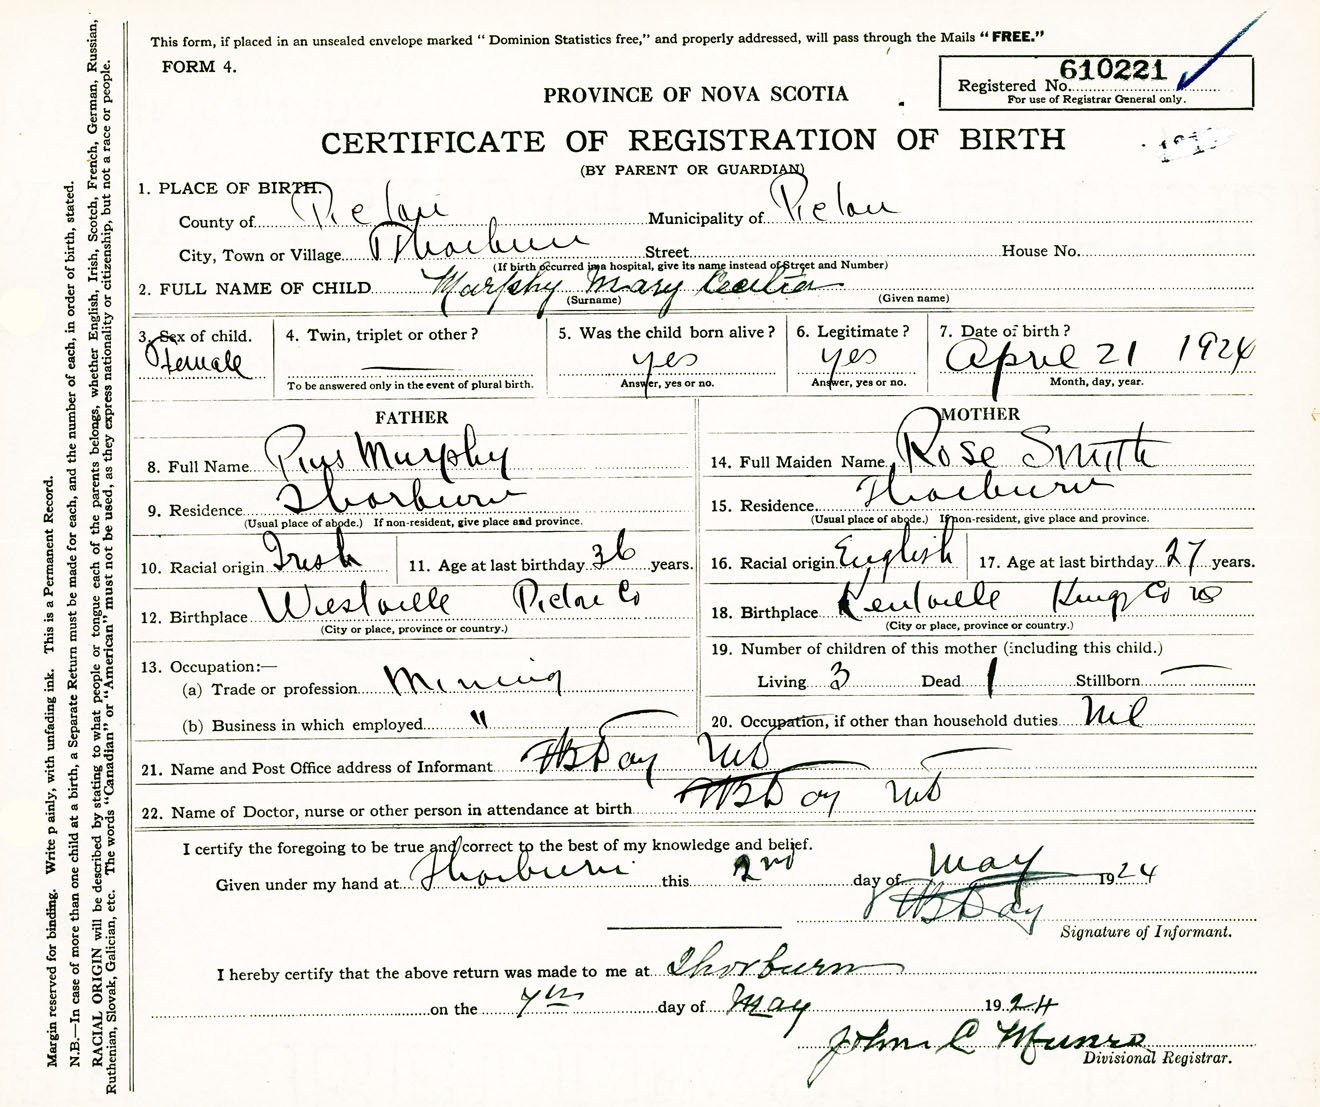 This form, if placed in an unsealed envelope marked "Dominion Statistics free," and properly addressed, will pass through the Mails "FREE."
FORM 4.
Registered No. 610221
For use of Registrar General only.
PROVINCE OF NOVA SCOTIA
CERTIFICATE OF REGISTRATION OF BIRTH
(BY PARENT OR GUARDIAN)
1. PLACE OF BIRTH.
County of Pictou Municipality of Pictou
City, Town or Village Thorburn Street House No.
(If birth occurred in a hospital, give its name instead of Street and Number)
2. FULL NAME OF CHILD Murphy Mary Cecilia
(Surname) (Given name)
3. Sex of child. 4. Twin, triplet or other? 5. Was the child born alive? 6. Legitimate? 7. Date of birth?
Female yes yes April 21 1924
To be answered only in the event of plural birth. Answer, yes or no. Answer, yes or no. Month, day, year.
FATHER MOTHER
8. Full Name Pius Murphy 14. Full Maiden Name Rose Smith
9. Residence Thorburn 15. Residence Thorburn
(Usual place of abode.) If non-resident, give place and province. (Usual place of abode.) If non-resident, give place and province.
10. Racial origin Irish 11. Age at last birthday 36 years. 16. Racial origin English 17. Age at last birthday 27 years.
12. Birthplace Westville Pictou Co 18. Birthplace Kentville Kings Co NS
(City or place, province or country.) (City or place, province or country.)
13. Occupation:— 19. Number of children of this mother (including this child.)
(a) Trade or profession Mining Living 3 Dead 1 Stillborn
(b) Business in which employed " 20. Occupation, if other than household duties Nil
21. Name and Post Office address of Informant Day MD
22. Name of Doctor, nurse or other person in attendance at birth Day MD
I certify the foregoing to be true and correct to the best of my knowledge and belief.
Given under my hand at Thorburn this 2nd day of May 1924
Day
Signature of Informant.
I hereby certify that the above return was made to me at Thorburn
on the 7th day of May 1924
John C Munro
Divisional Registrar.
Margin reserved for binding. Write plainly, with unfading ink. This is a Permanent Record.
N.B.—In case of more than one child at a birth, a Separate Return must be made for each, and the number of each, in order of birth, stated.
RACIAL ORIGIN will be described by stating to what people or tongue each of the parents belongs, whether English, Irish, Scotch, French, German, Russian,
Ruthenian, Slovak, Galician, etc. The words "Canadian" or "American" must not be used, as they express nationality or citizenship, but not a race or people.